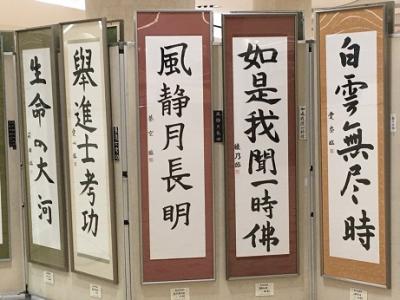 生命の大河
舉進士考功
風静月長明
如是我聞一時佛
白雲無尽時